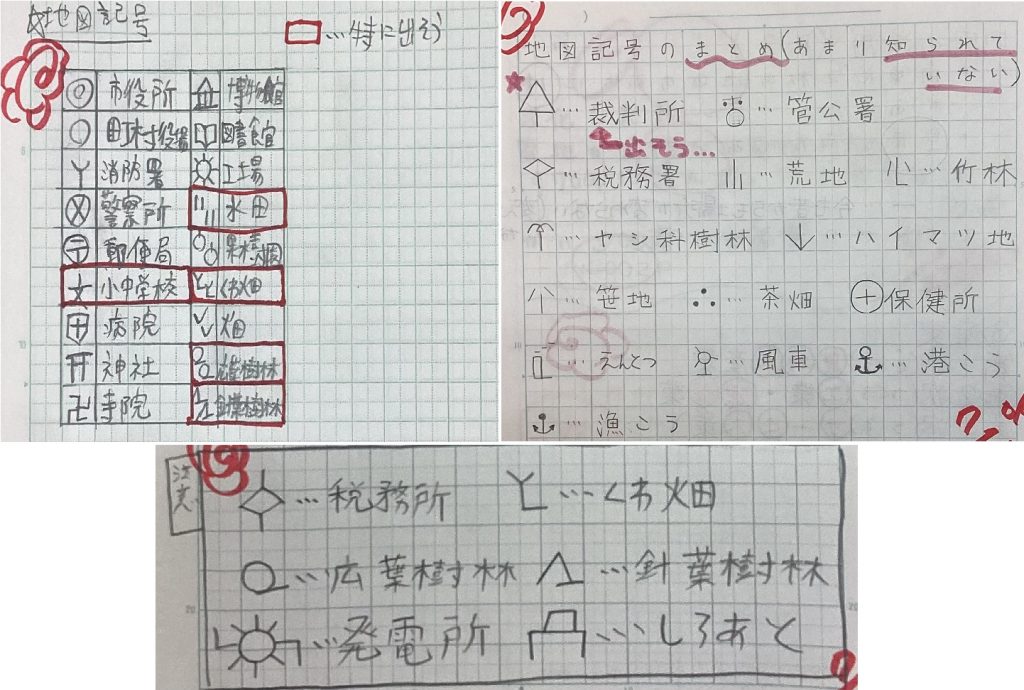 地図記号
…特に出そう
市役所 博物館
町村役場 図書館
消防署 工場
警察所 水田
郵便局 果樹園
小中学校 くわ畑
病院 畑
神社 広葉樹林
寺院 針葉樹林
地図記号のまとめ(あまり知られて
いない)
…裁判所 …管公署
出そう…
…税務署 …荒地 …竹林
…ヤシ科樹林 …ハイマツ地
…笹地 …茶畑 保健所
…えんとつ …風車 …港こう
…漁こう
注意
…税務所 …くわ畑
…広葉樹林 …針葉樹林
…発電所 …しろあと